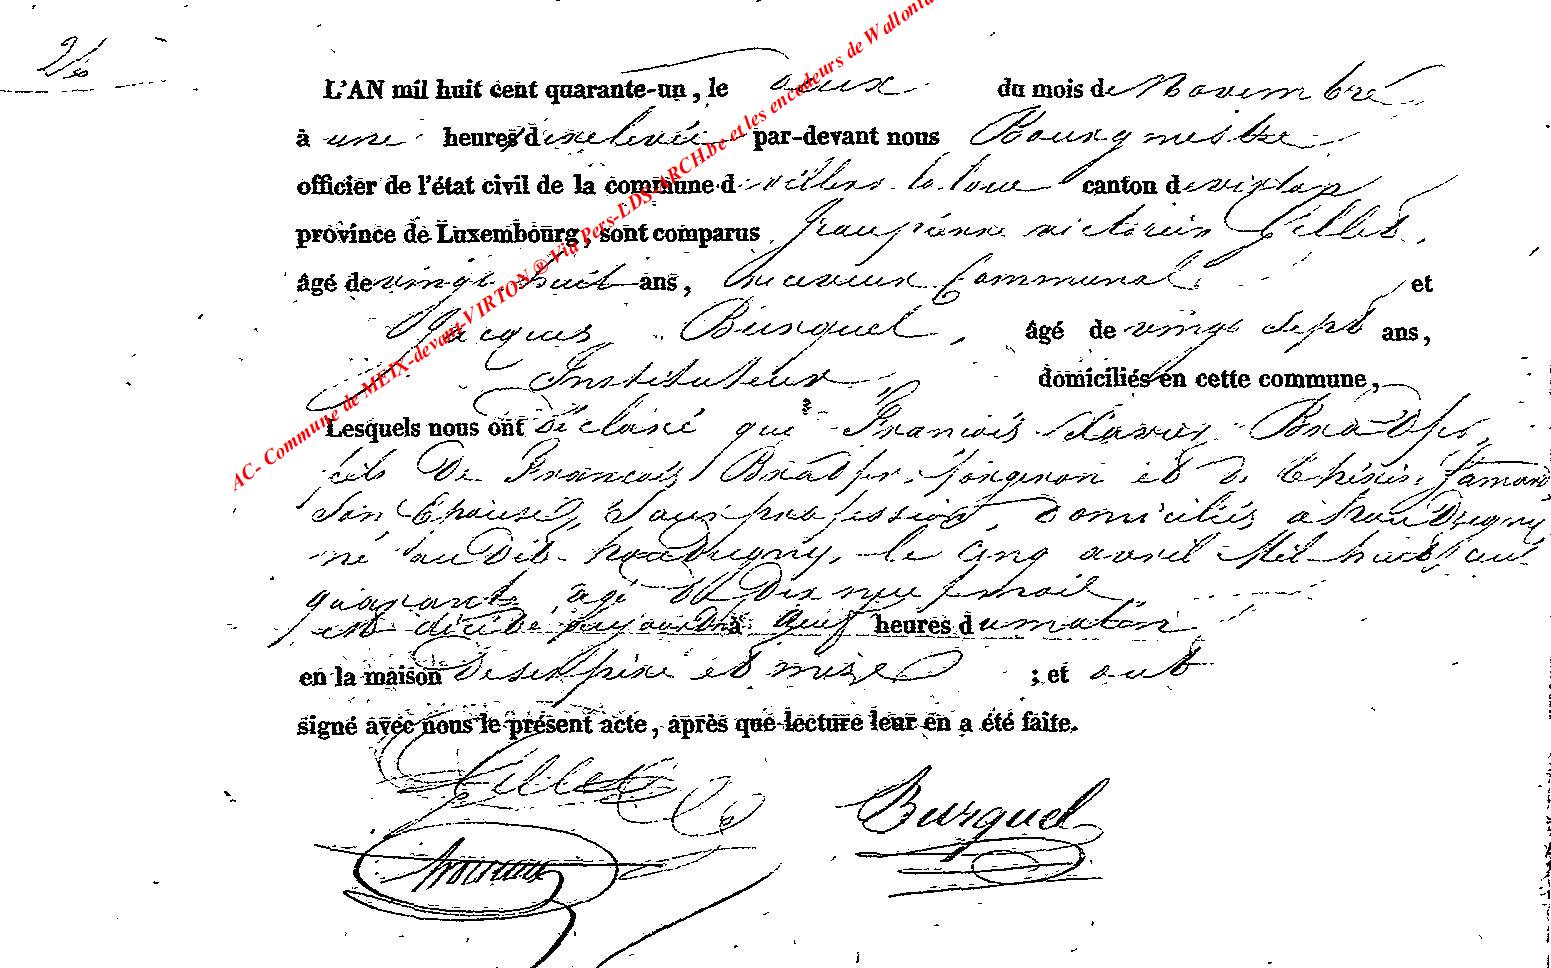 L'AN mil huit cent quarante-un, le deux du mois de Novembre
à une heures de relevée par-devant nous Bourgmestre
officier de l'état civil de la commune d villers la loue canton de virton
province de Luxembourg, sont comparus Jean pierre victorin Gillet,
âgé de vingt huit ans, receveur Communal et
Jacques Burquel, âgé de vingt sept ans,
Instituteur domiciliés en cette commune,
Lesquels nous ont déclaré que François Xavier
fils De François forgeron et de Thérèse
Son Epouse, Sans profession, domiciliés à houdrigny
né au dit houdrigny, le cinq avril Mil huit cent
quarante, âgé de Dix neuf mois
est décédé aujourdhui à heures du matin
en la maison de ses père et mère ; et ont
signé avec nous le présent acte, après que lecture leur en a été faite.
Gillet
Burquel
AC- Commune de MEIX-devant-VIRTON ® Via Pers-LDS-ARCH.be et les encodeurs de Wallonie